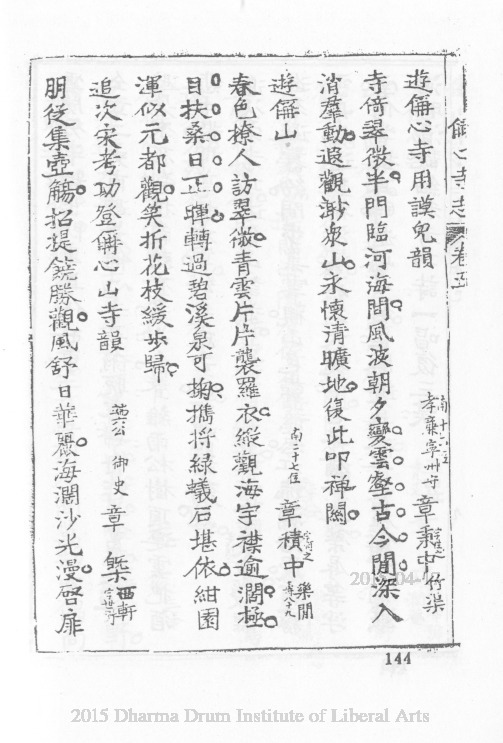 偁心寺志 卷五
遊偁心寺用謨兒韻 章秉中 竹渠
寺倚翠微半門臨河海間風波朝夕變雲壑古今閒深入
消羣動遐觀渺衆山永懷清曠地復此叩禪關
遊偁山 南二十七住 章積中 樂閒
春色撩人訪翠微青雲片片襲羅衣縱觀海宇襟逾濶極
目扶桑日正暉轉過碧溪泉可掬攜將綠蟻石堪依紺園
渾似元都觀笑折花枝緩步歸
追次宋考功登偁心山寺韻 御史章 槩 西軒
朋從集壺觴招提饒勝觀風舒日華麗海濶沙光漫啓扉
144
2015 Dharma Drum Institute of Liberal Arts